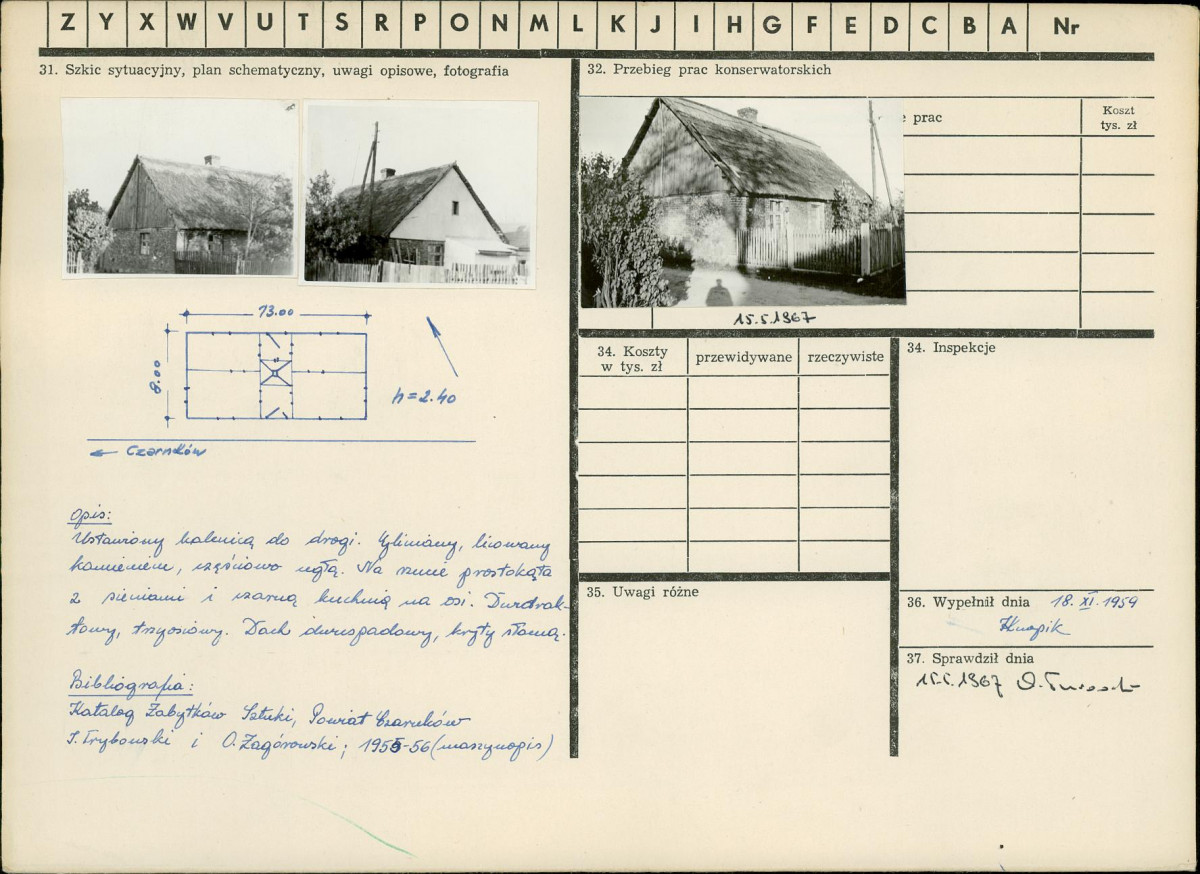 Z Y X W V U T S R P O N M L K J I H G F E D C B A Nr
31. Szkic sytuacyjny, plan schematyczny, uwagi opisowe, fotografia
13.00
8.00
h = 2.40
← Czarnków
Opis:
Ustawiony kalenicą do drogi. Gliniany, licowany
kamieniem, częściowo cegłą. Na rzucie prostokąta
z sieniami i czarną kuchnią na osi. Dwutrak-
towy, trzyosiowy. Dach dwuspadowy, kryty słomą.
Bibliografia:
Katalog Zabytków Sztuki, Powiat Czarnków
i O. Zagórowski; 1955-56 (maszynopis)
32. Przebieg prac konserwatorskich
prac
Koszt
tys. zł
15.5.1967
34. Koszty
w tys. zł
przewidywane
rzeczywiste
35. Uwagi różne
34. Inspekcje
36. Wypełnił dnia 18.XI.1959
37. Sprawdził dnia
15.5.1967